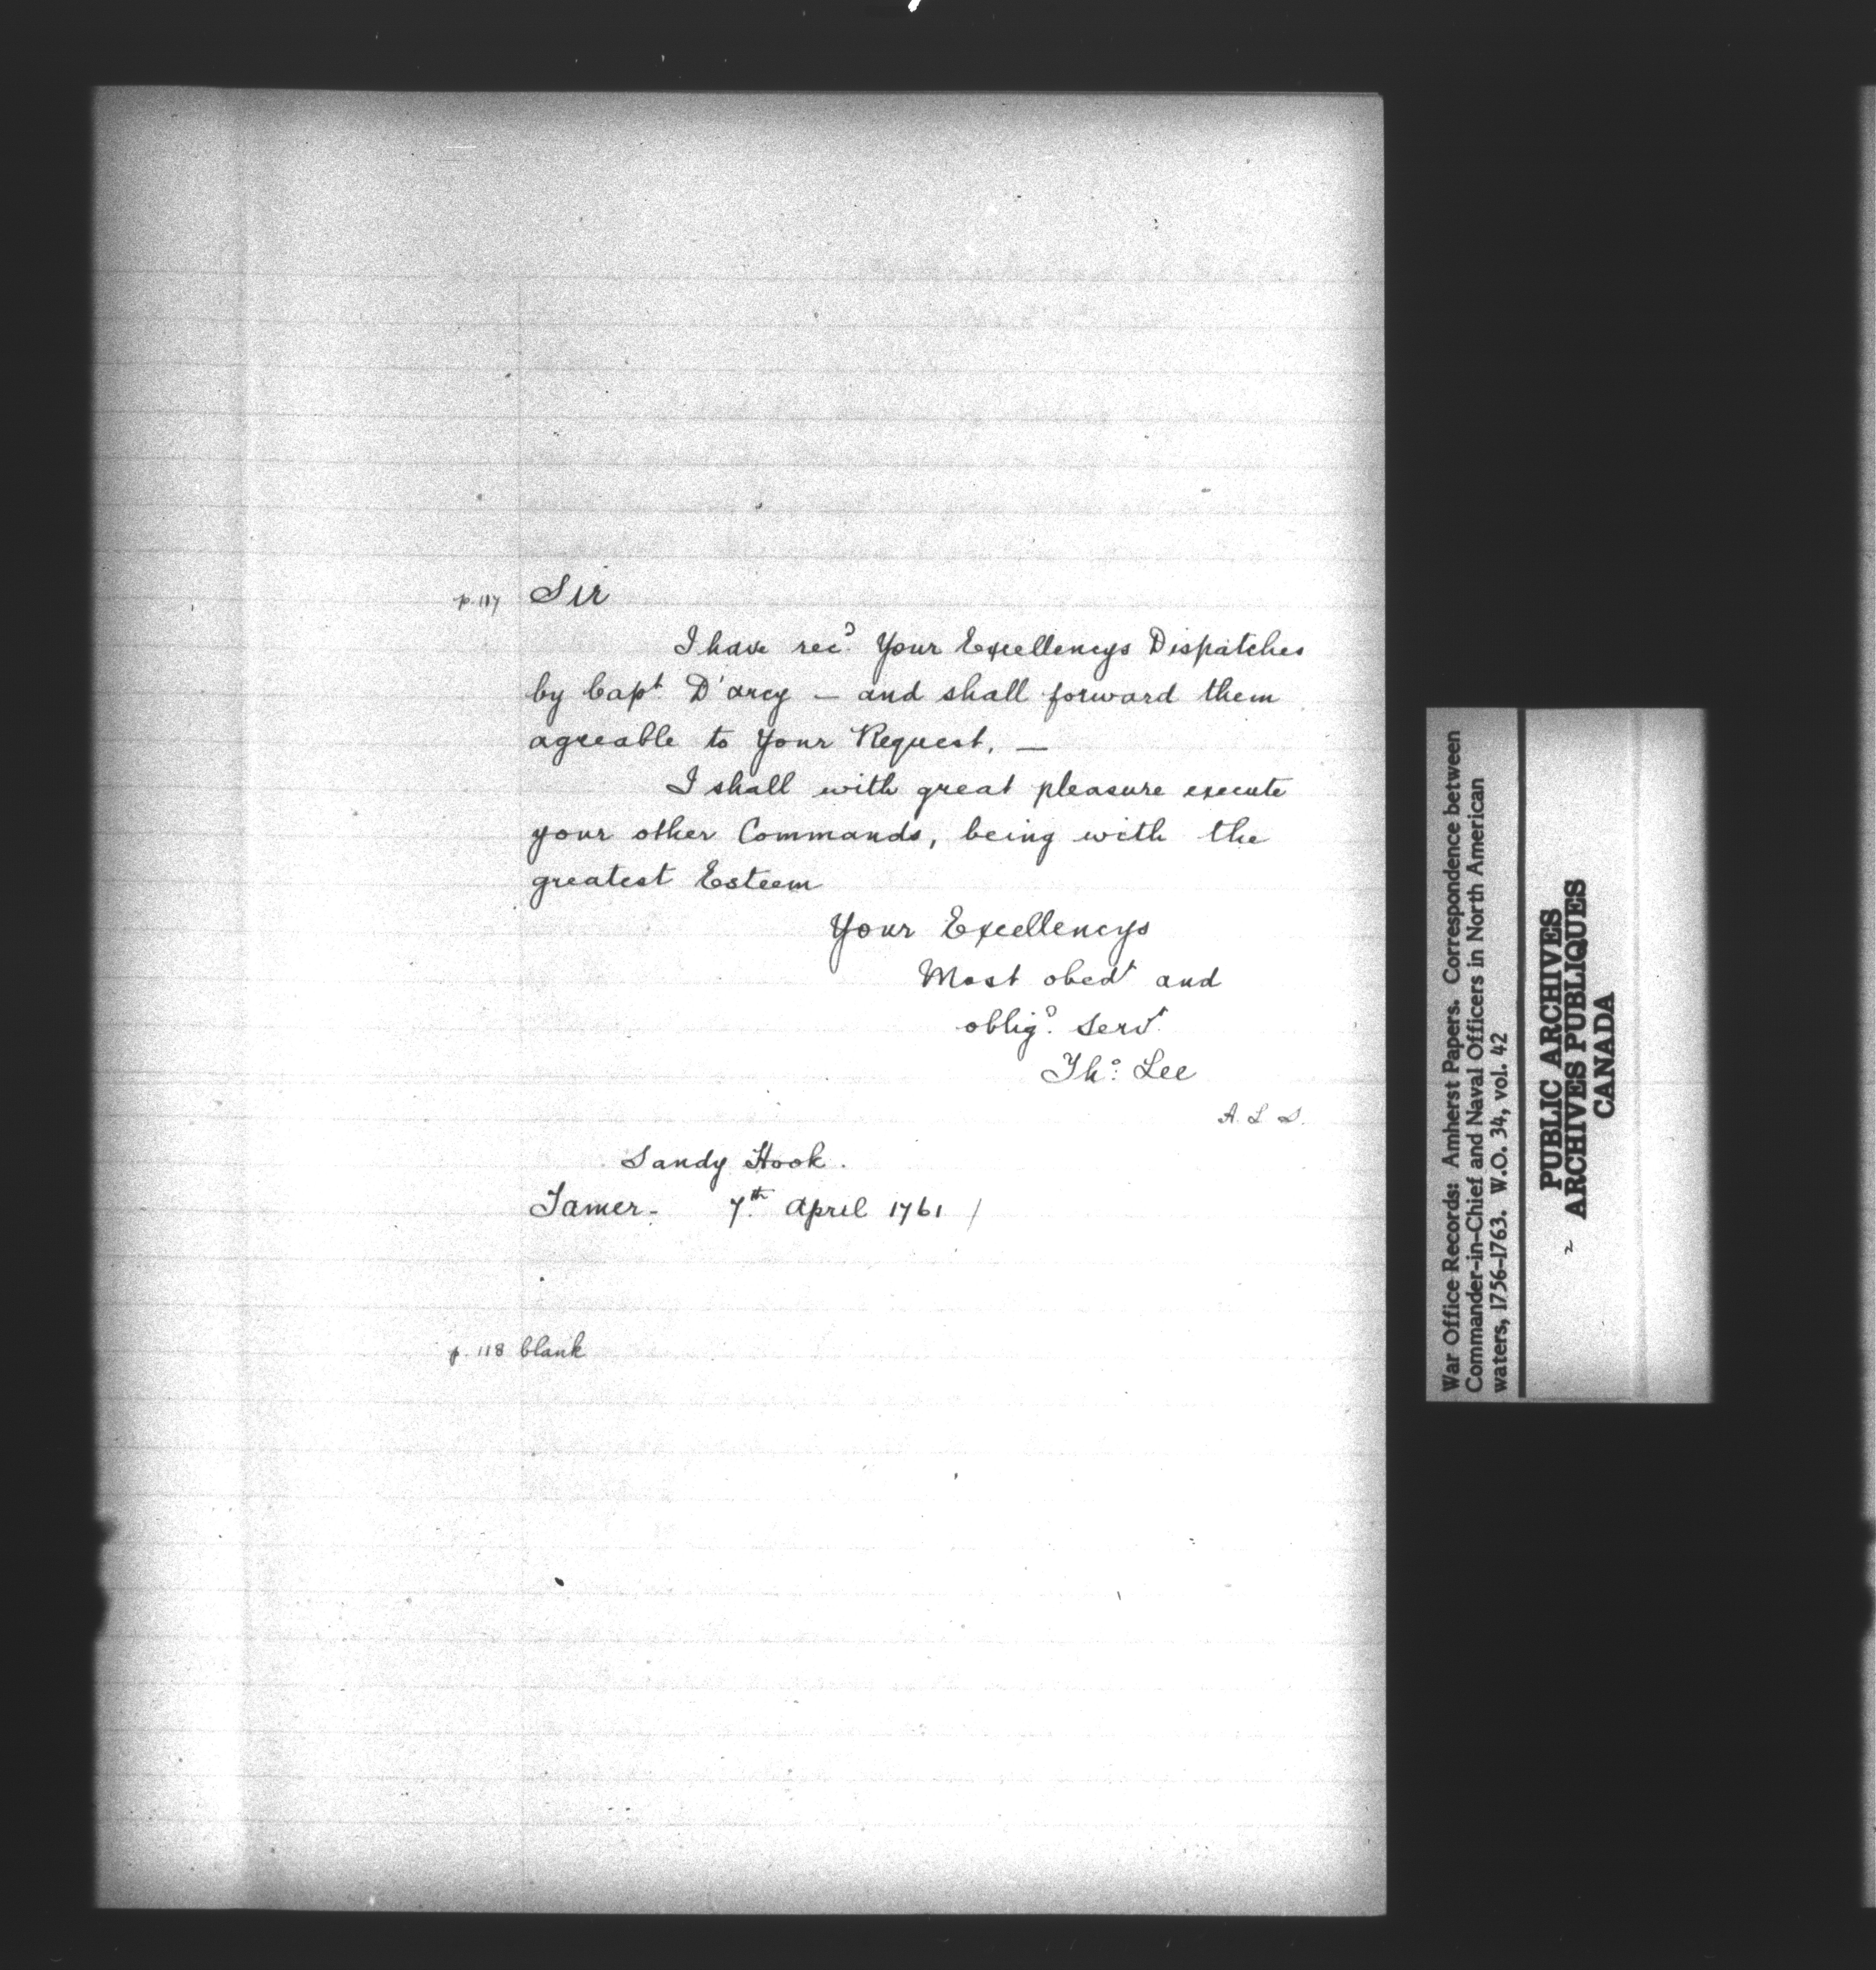 p. 117 Sir
I have rec.d Your Excellencys Dispatches
by Capt. D'arcy — and shall forward them
agreable to Your Request. —
I shall with great pleasure execute
your other Commands, being with the
greatest Esteem
Your Excellencys
Most obedt and
oblig.d Servt.
Tho: Lee
A. L. S.
Sandy Hook.
Tamer- 7.th April 1761 /
p. 118 blank
War Office Records: Amherst Papers. Correspondence between
Commander-in-Chief and Naval Officers in North American
waters, 1756-1763. W.O. 34, vol. 42
PUBLIC ARCHIVES
ARCHIVES PUBLIQUES
CANADA
2